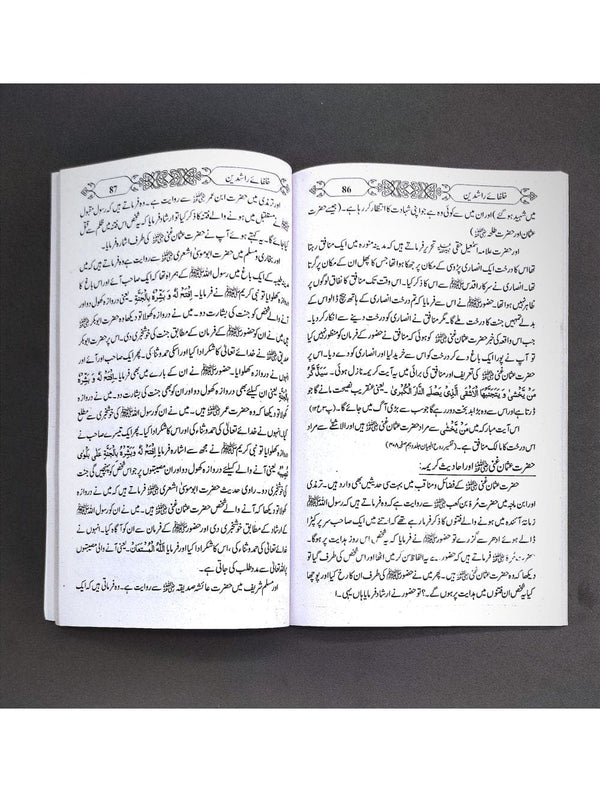 خلفائے راشدین
86
میں شہید ہو گئے) اور ان میں سے کوئی وہ ہے جو اپنی شہادت کا انتظار کر رہا ہے۔ (جیسے حضرت
عثمان اور حضرت طلحہ
اور حضرت علامہ اسمٰعیل حقی تحریر فرماتے ہیں کہ مدینہ منورہ میں ایک منافق رہتا
تھا اس کا درخت ایک انصاری پڑوسی کے مکان پر جھکا ہوا تھا جس کا پھل ان کے مکان پر گرتا
تھا۔ انصاری نے سرکار اقدس ﷺ سے اس کا ذکر کیا۔ اس وقت تک منافق کا نفاق لوگوں پر
ظاہر نہیں ہوا تھا۔ حضور ﷺ نے اس سے فرمایا کہ تم درخت انصاری کے ہاتھ بیچ ڈالو اس کے
بدلے تمہیں جنت کا درخت ملے گا۔ مگر منافق نے انصاری کو درخت دینے سے انکار کر دیا۔
جب اس واقعہ کی خبر حضرت عثمان غنی کو ہوئی کہ منافق نے حضور ﷺ کے فرمان کو منظور نہیں کیا
تو آپ نے پورا ایک باغ دے کر درخت کو اس سے خرید لیا اور انصاری کو دے دیا۔ اس پر
حضرت عثمان غنی کی تعریف اور منافق کی برائی میں یہ آیت کریمہ نازل ہوئی۔ سَیَذَّكَّرُ
مَنْ یَّخْشٰی وَ یَتَجَنَّبُهَا الْاَشْقَی الَّذِیْ یَصْلَی النَّارَ الْكُبْرٰی۔ یعنی عنقریب نصیحت مانے گا جو
ڈرتا ہے اور اس سے وہ بڑا بدبخت دور رہے گا جو سب سے بڑی آگ میں جائے گا۔
اس آیت مبارکہ میں مَنْ یَّخْشٰی سے مراد حضرت عثمان غنی ہیں اور الاشقٰی سے مراد
اس درخت کا مالک منافق ہے۔
حضرت عثمان غنی اور احادیث کریمہ:
حضرت عثمان غنی کے فضائل و مناقب میں بہت سی حدیثیں بھی وارد ہیں۔ ترمذی
اور ابن ماجہ میں حضرت مُرّہ بن کعب سے روایت ہے وہ فرماتے ہیں کہ رسول اللہ ﷺ
زمانہ آئندہ میں ہونے والے فتنوں کا ذکر فرما رہے تھے کہ اتنے میں ایک صاحب سر پر کپڑا
ڈالے ہوئے ادھر سے گزرے تو حضور ﷺ نے فرمایا کہ یہ شخص اس روز ہدایت پر ہوگا۔
حضرت مُرّہ فرماتے ہیں کہ حضور سے یہ الفاظ سن کر میں اٹھا اور اس شخص کی طرف گیا تو
دیکھا کہ وہ حضرت عثمان غنی ہیں۔ پھر میں نے حضور ﷺ کی طرف ان کا رخ کیا اور پوچھا
کیا یہ شخص ان فتنوں میں ہدایت پر ہوں گے۔؟ تو حضور نے ارشاد فرمایا ہاں یہی۔
خلفائے راشدین
87
اور ترمذی میں حضرت ابن عمر سے روایت ہے۔ وہ فرماتے ہیں کہ رسول مقبول
ﷺ نے مستقبل میں ہونے والے فتنہ کا ذکر کیا تو ارشاد فرمایا کہ یہ شخص اس فتنہ میں ظلم سے قتل
کیا جائے گا۔ یہ کہتے ہوئے آپ نے حضرت عثمان غنی کی طرف اشارہ فرمایا۔
اور بخاری و مسلم میں حضرت ابو موسیٰ اشعری سے روایت ہے۔ وہ فرماتے ہیں کہ میں
مدینہ طیبہ کے ایک باغ میں رسول اللہ ﷺ کے ہمراہ تھا کہ ایک صاحب آئے اور اس باغ کا دروازہ
کھلوایا تو نبی کریم ﷺ نے فرمایا۔ اِفْتَحْ لَهٗ وَ بَشِّرْهُ بِالْجَنَّةِ۔ یعنی دروازہ کھول دو اور
آنے والے شخص کو جنت کی بشارت دو۔ میں نے دروازہ کھولا تو دیکھا کہ وہ حضرت ابو بکر
ہیں میں نے ان کو حضور ﷺ کے فرمان کے مطابق جنت کی خوشخبری دی۔ اس پر حضرت ابو بکر
صدیق نے خدائے تعالیٰ کا شکر ادا کیا اور اسکی حمد و ثنا کی۔ پھر ایک صاحب اور آئے اور
انہوں نے دروازہ کھلوایا۔ حضور ﷺ نے فرمایا۔ اِفْتَحْ لَهٗ وَ بَشِّرْهُ
بِالْجَنَّةِ۔ یعنی ان کیلئے بھی دروازہ کھول دو اور ان کو بھی جنت کی بشارت دو۔ میں نے دروازہ
کھولا تو دیکھا کہ وہ حضرت عمر ہیں۔ میں نے ان کو رسول اللہ ﷺ کی خوشخبری سے مطلع
کیا۔ انہوں نے خدائے تعالیٰ کی حمد و ثنا کی اور اس کا شکر ادا کیا۔ پھر ایک تیسرے صاحب نے
دروازہ کھلوایا تو نبی کریم ﷺ نے مجھ سے ارشاد فرمایا۔ اِفْتَحْ لَهٗ وَ بَشِّرْهُ بِالْجَنَّةِ عَلٰی بَلْوٰی
تُصِیْبُهٗ۔ یعنی آنے والے کیلئے دروازہ کھول دو اور مصیبتوں پر جو اس شخص کو پہنچیں گی جنت
کی خوشخبری دو۔ راوی حدیث حضرت ابو موسیٰ اشعری فرماتے ہیں کہ میں نے دروازہ
کھولا تو دیکھا کہ آنے والے شخص حضرت عثمان غنی ہیں۔ میں نے ان کو حضور ﷺ
کے ارشاد کے مطابق خوشخبری دی اور حضور ﷺ کے فرمان سے ان کو آگاہ کیا۔ انہوں نے
خدائے تعالیٰ کی حمد و ثنا کی، اس کا شکر ادا کیا اور فرمایا اَللّٰهُ الْمُسْتَعَانُ۔ یعنی آنے والی مصیبتوں
پر اللہ تعالیٰ سے مدد طلب کی جاتی ہے۔
اور مسلم شریف میں حضرت عائشہ صدیقہ سے روایت ہے۔ وہ فرماتی ہیں کہ ایک